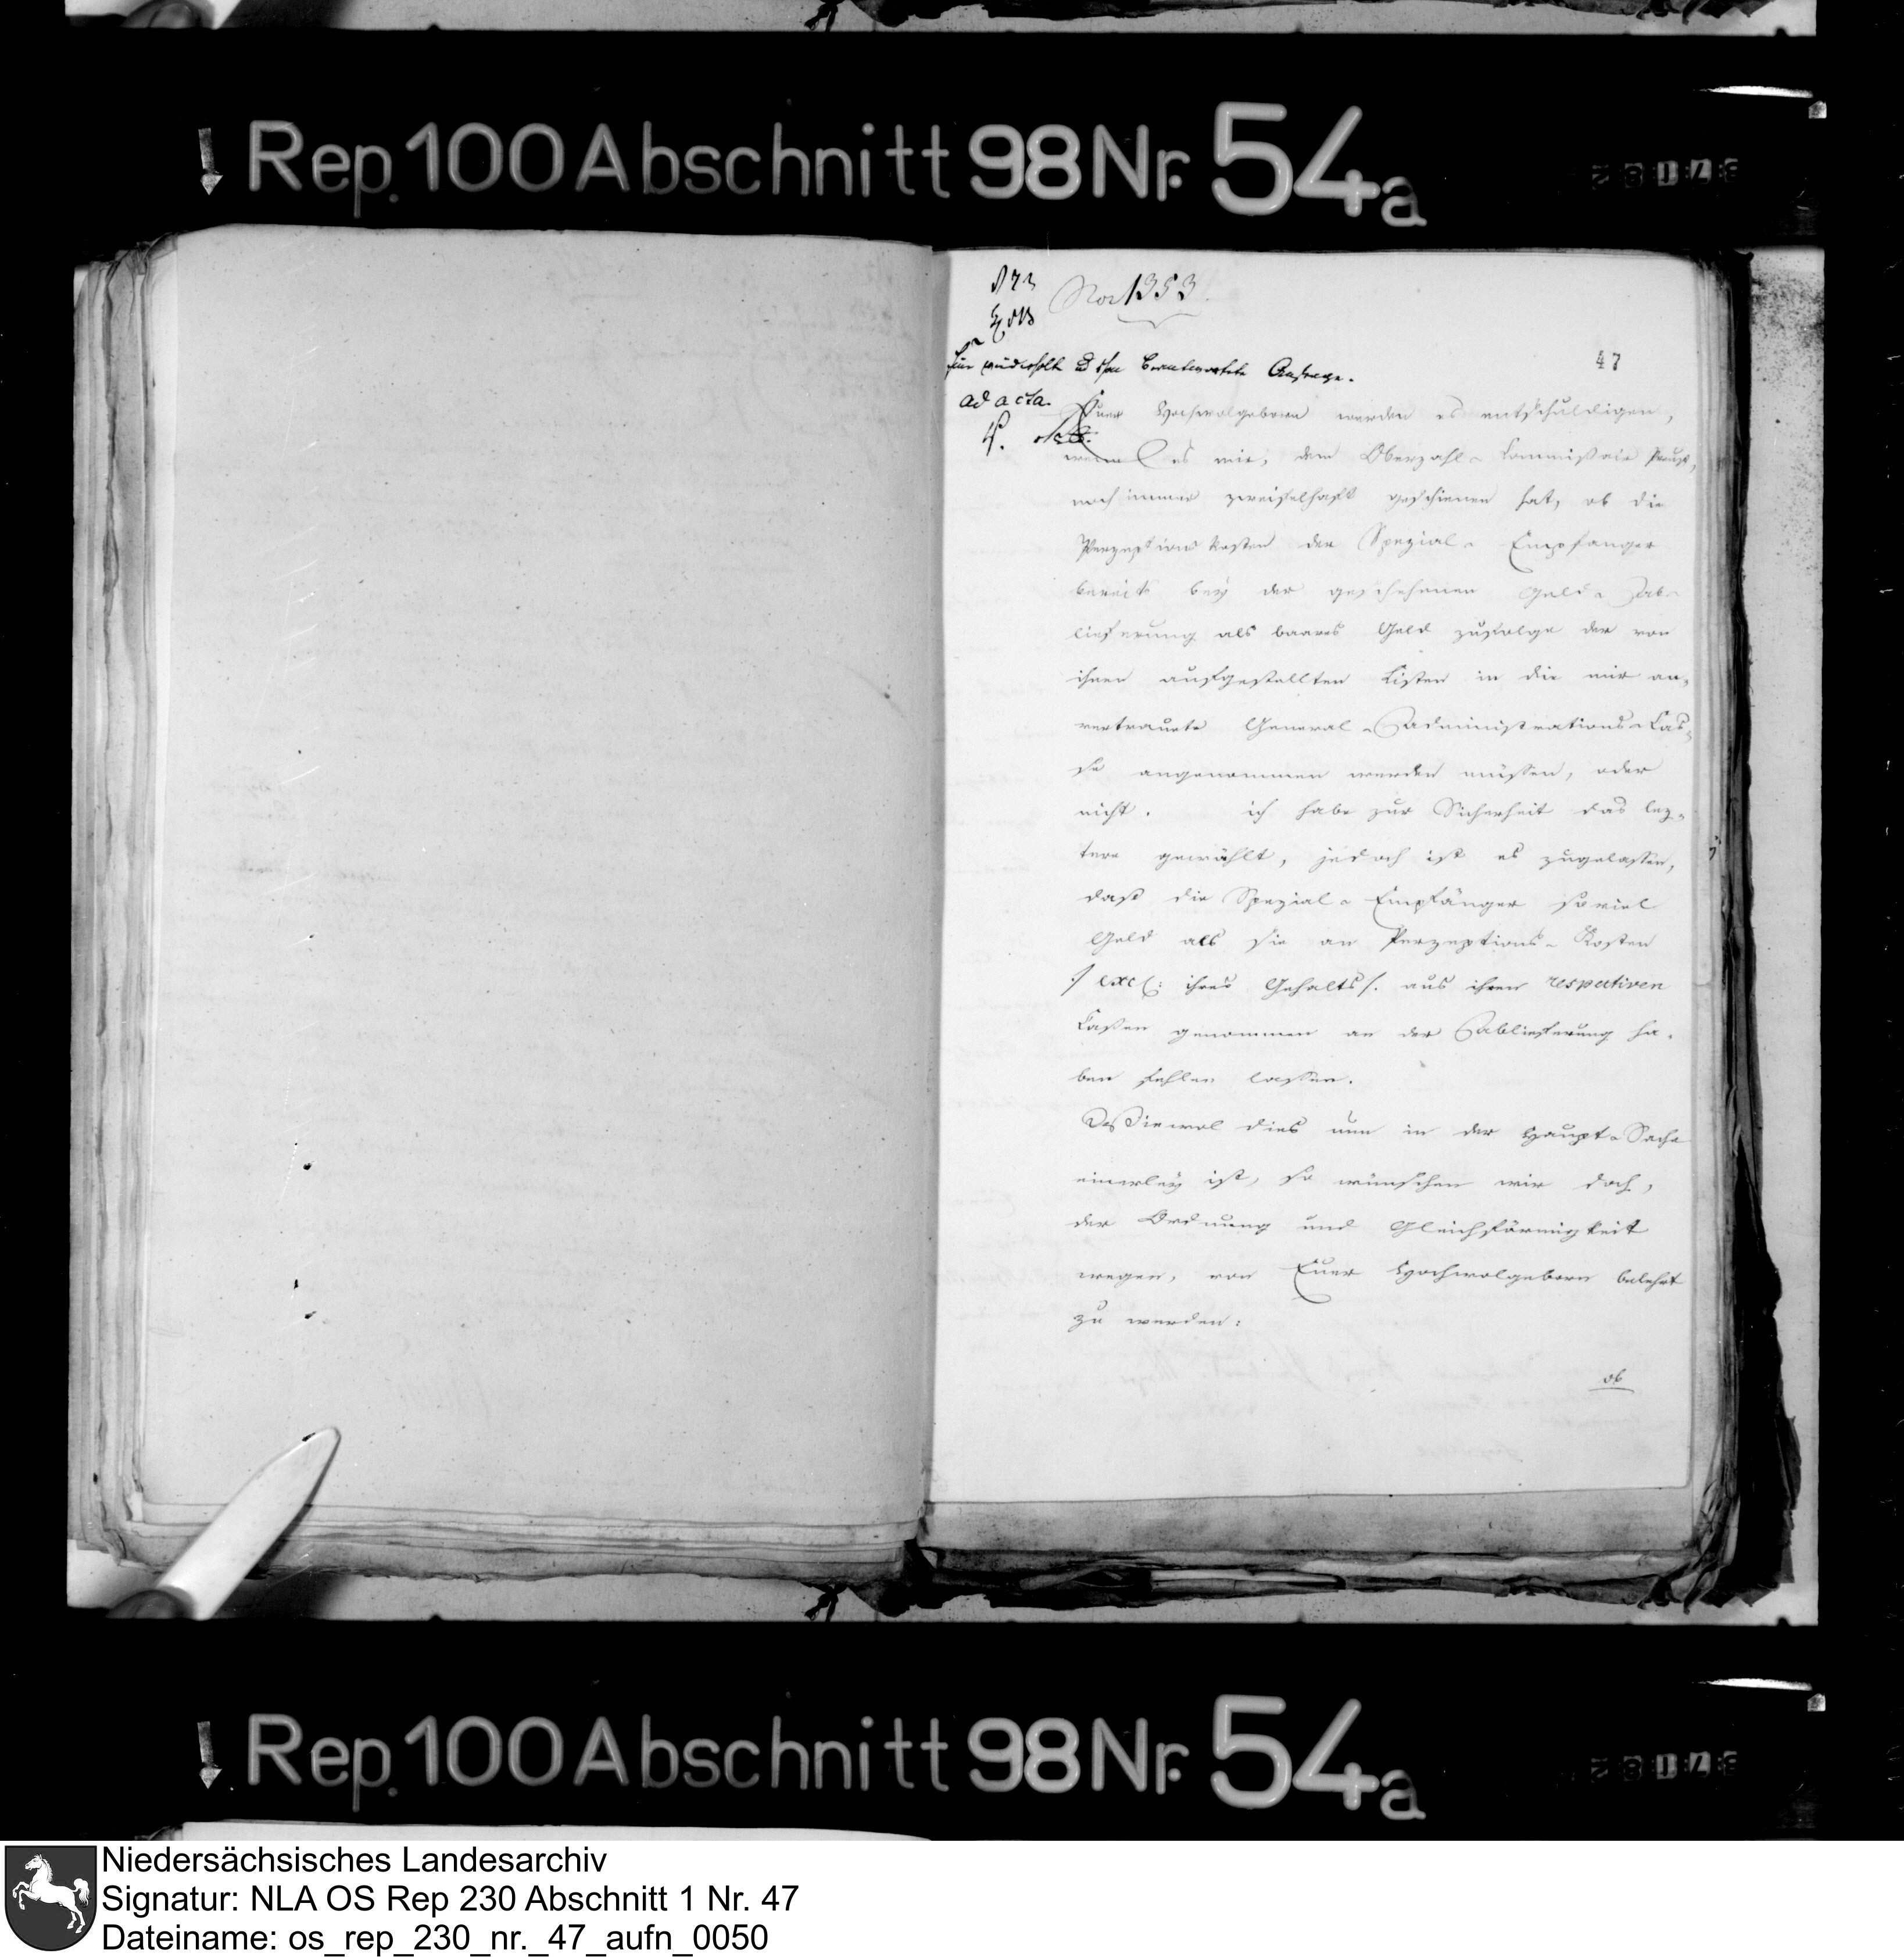 Rep. 100 Abschnitt 98 Nr. 54a
Nor 1353.
47
Anfrage.
ad acta.
Euer Hochwolgeborn werden es entschuldigen,
wenn es mir, dem Oberzahl-Commißair
noch immer zweifelhaft geschienen hat, ob die
Perzeptions kosten der Spezial-Empfanger
bereits bey der geschehenen Geld-Ab-
lieferung als baares Geld zufolge der von
ihnen aufgestellten Listen in die mir an-
vertraute General-Administrations-Cas-
se angenommen werden müssen, oder
nicht. ich habe zur Sicherheit das lez-
tere gewählt, jedoch ist es zugelassen,
daß die Spezial-Empfänger soviel
Geld als sie an Perzeptions-Kosten
/ excl: ihres Gehalts/. aus ihren respectiven
Cassen genommen an der Ablieferung ha-
ben fehlen lassen.
dies nun in der Haupt-Sache
einerley ist, so wünschen wir doch,
der Ordnung und Gleichförmigkeit
wegen, von Euer Hochwolgeborn belehrt
zu werden:
ob
Rep. 100 Abschnitt 98 Nr. 54a
Niedersächsisches Landesarchiv
Signatur: NLA OS Rep 230 Abschnitt 1 Nr. 47
Dateiname: os_rep_230_nr._47_aufn_0050